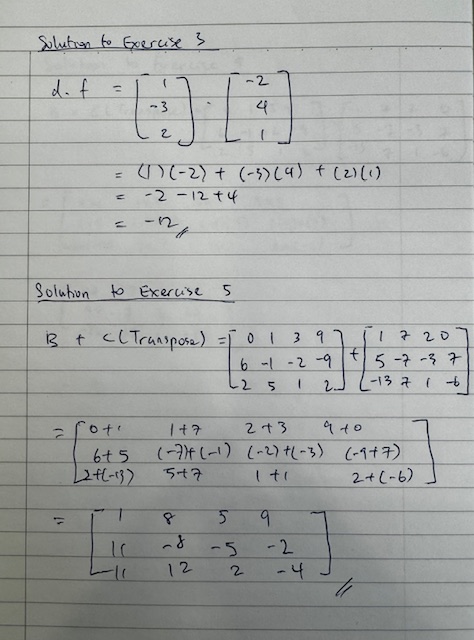 Solution to Exercise 3
d.f = [1 -3 2] . [-2 4 1]
= (1)(-2) + (-3)(4) + (2)(1)
= -2 -12 +4
= -12
Solution to Exercise 5
B + C(Transpose) = [0 1 3 9
6 -1 -2 -9
2 5 1 2] + [1 7 2 0
5 -7 -3 7
-13 7 1 -6]
= [0+1 1+7 2+3 9+0
6+5 (-7)+(-1) (-2)+(-3) (-9+7)
2+(-13) 5+7 1+1 2+(-6)]
= [1 8 5 9
11 -8 -5 -2
-11 12 2 -4]